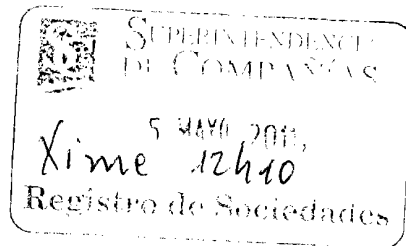 SUPERINTENDENCIA
DE COMPAÑÍAS
5 MAYO 2011,
Xime 12h10
Registro de Sociedades